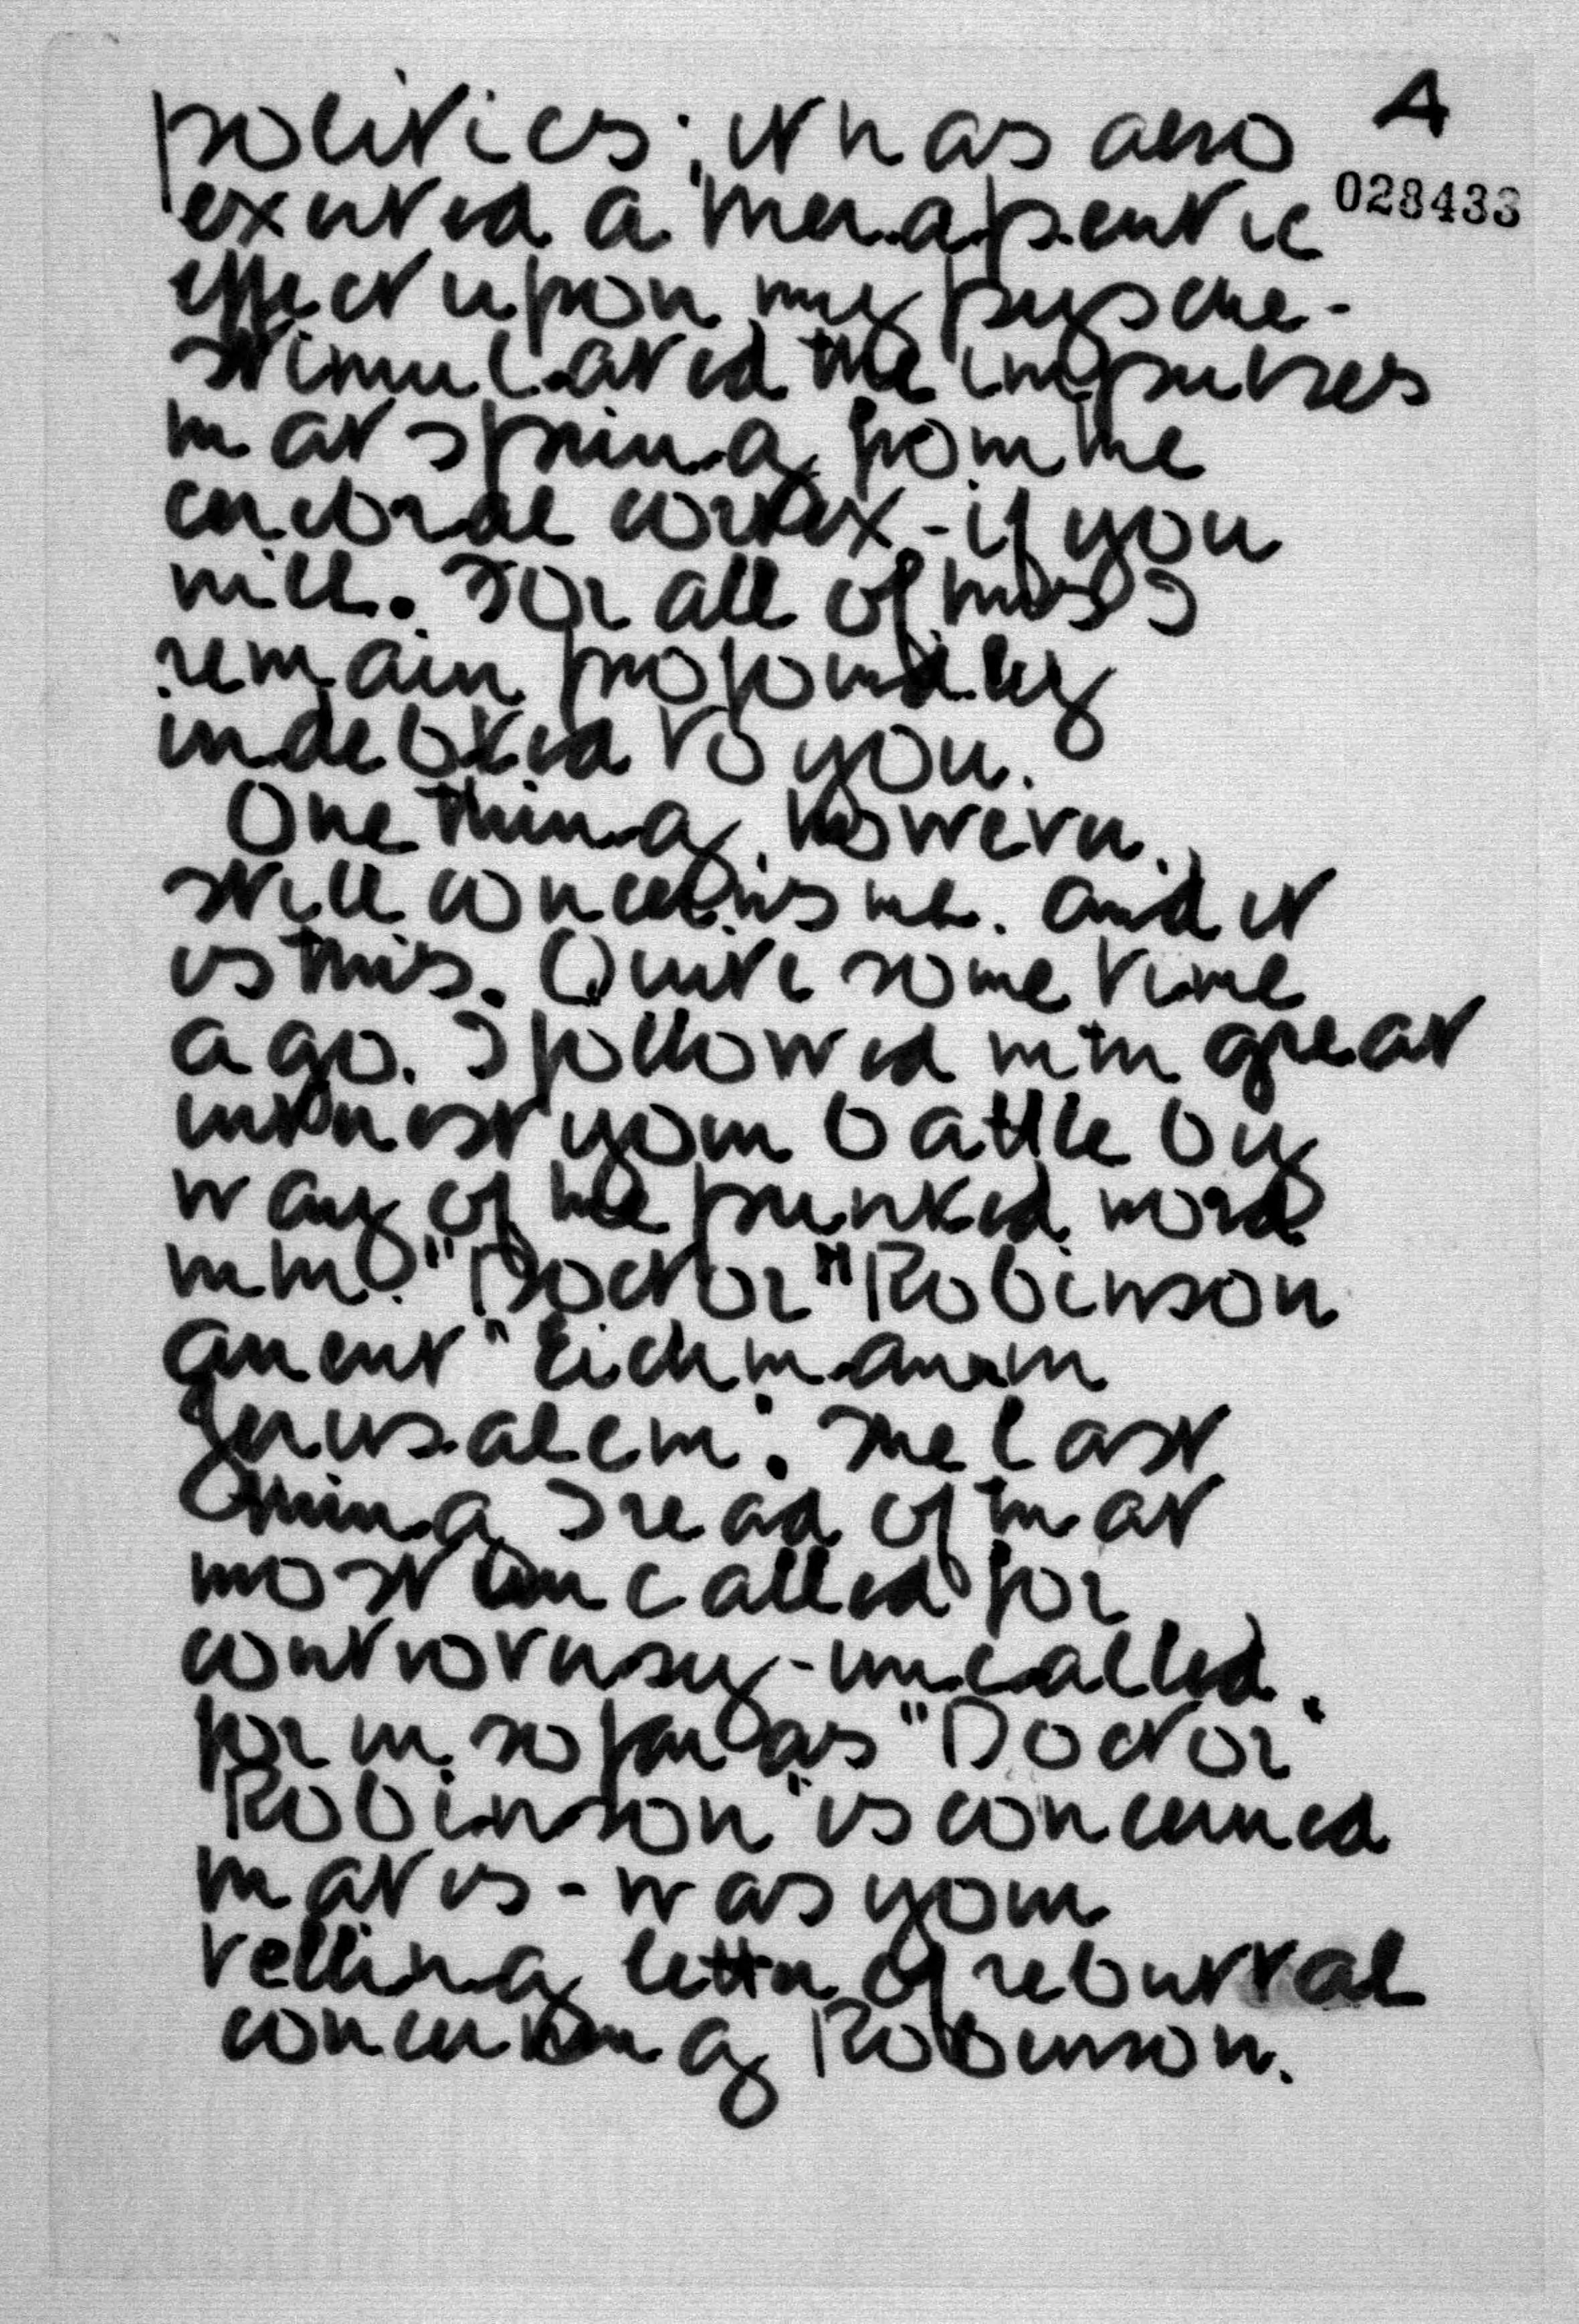 politics; it has also A
028433
exerted a therapeutic
effect upon my pysche-
stimulated the impulses
that spring from the
cerebral cortex-if you
will. For all of this I
remain profoundly
indebted to you.
One thing, however,
still concerns me. and it
is this. Quite some time
ago. I followed with great
interest your battle by
way of the printed word
with "Doctor" Robinson
anent "Eichmann in
Jerusalem". The last
thing I read of that
most uncalled for
controversy-uncalled
for in so far as "Doctor"
Robinson is concerned
that is-was your
telling letter of rebuttal
concerning Robinson.